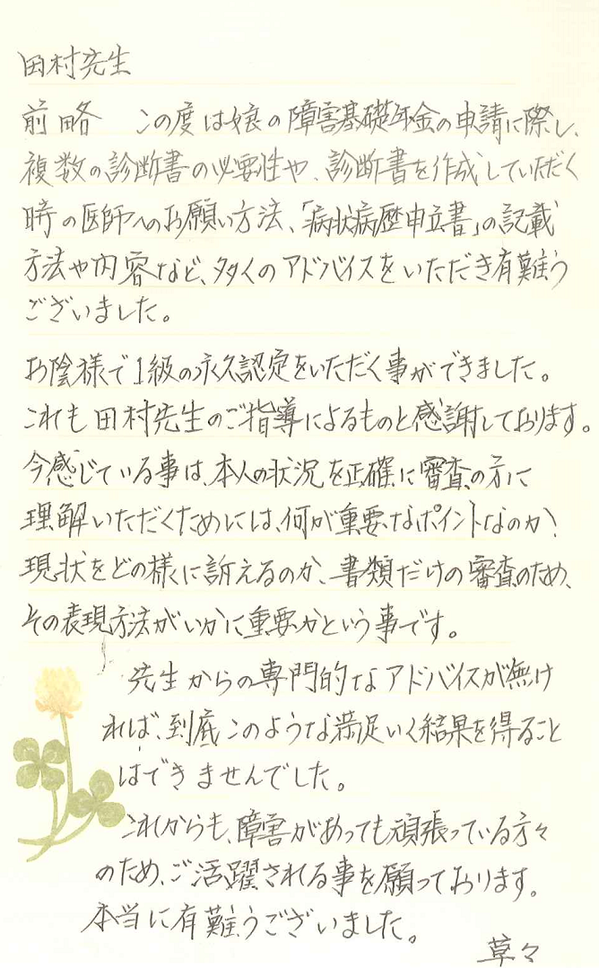 田村先生
前略　この度は娘の障害基礎年金の申請に際し、
複数の診断書の必要性や、診断書を作成していただく
時の医師へのお願い方法、「病状病歴申立書」の記載
方法や内容など、多くのアドバイスをいただき有難う
ございました。
お陰様で1級の永久認定をいただく事ができました。
これも田村先生のご指導によるものと感謝しております。
今感じている事は、本人の状況を正確に審査の方に
理解いただくためには、何が重要なポイントなのか？
現状をどの様に訴えるのか、書類だけの審査のため、
その表現方法がいかに重要かという事です。
先生からの専門的なアドバイスが無け
れば、到底このような満足いく結果を得ること
はできませんでした。
これからも、障害があっても頑張っている方々
のため、ご活躍される事を願っております。
本当に有難うございました。
草々